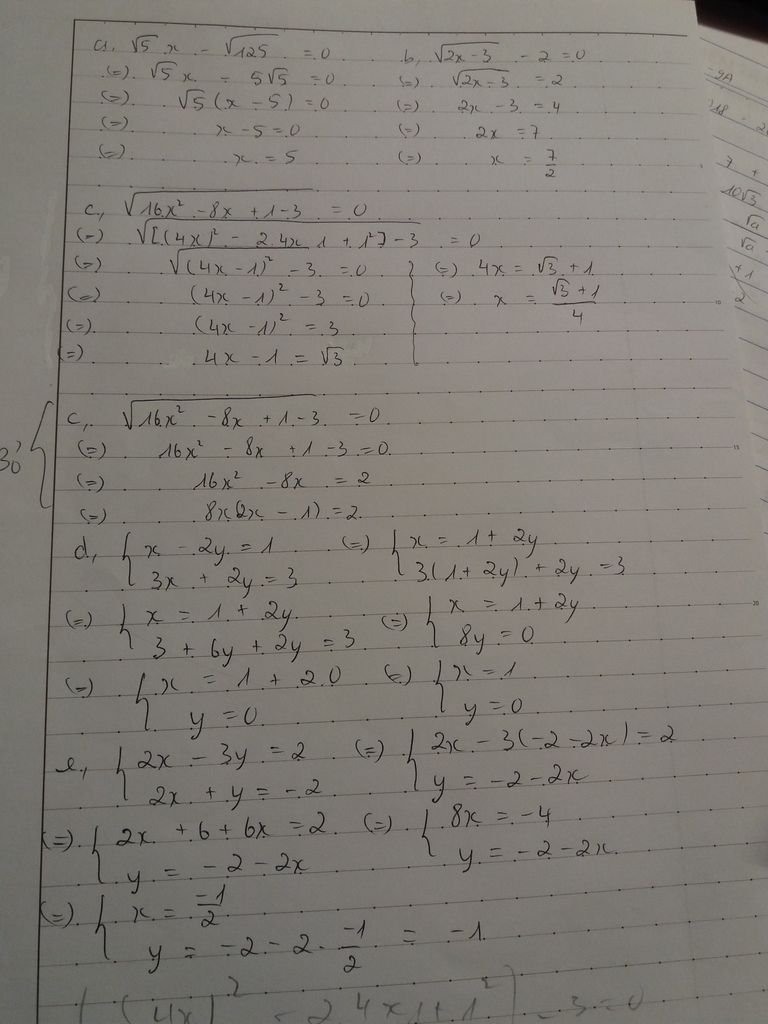 a, √5 x - √125 = 0
(=) √5 x - 5√5 = 0
(=) √5 (x - 5) = 0
(=) x - 5 = 0
(=) x = 5
b, √(2x - 3) - 2 = 0
(=) √(2x - 3) = 2
(=) 2x - 3 = 4
(=) 2x = 7
(=) x = 7/2
c, √(16x² - 8x + 1 - 3) = 0
(=) √([(4x)² - 2.4x.1 + 1²] - 3) = 0
(=) √((4x - 1)² - 3) = 0
(=) (4x - 1)² - 3 = 0
(=) (4x - 1)² = 3
(=) 4x - 1 = √3
(=) 4x = √3 + 1
(=) x = (√3 + 1)/4
c, √(16x² - 8x + 1 - 3) = 0
(=) 16x² - 8x + 1 - 3 = 0
(=) 16x² - 8x = 2
(=) 8x(2x - 1) = 2
30'
d, { x - 2y = 1 (=) { x = 1 + 2y
3x + 2y = 3 3(1 + 2y) + 2y = 3
(=) { x = 1 + 2y (=) { x = 1 + 2y
3 + 6y + 2y = 3 8y = 0
(=) { x = 1 + 2.0 (=) { x = 1
y = 0 y = 0
e, { 2x - 3y = 2 (=) { 2x - 3(-2 - 2x) = 2
2x + y = -2 y = -2 - 2x
(=) { 2x + 6 + 6x = 2 (=) { 8x = -4
y = -2 - 2x y = -2 - 2x
(=) { x = -1/2
y = -2 - 2. -1/2 = -1
[(4x)² - 2.4x1 + 1²] - 3 = 0
-9A
7 +
10√3
√a
√a
+1
2